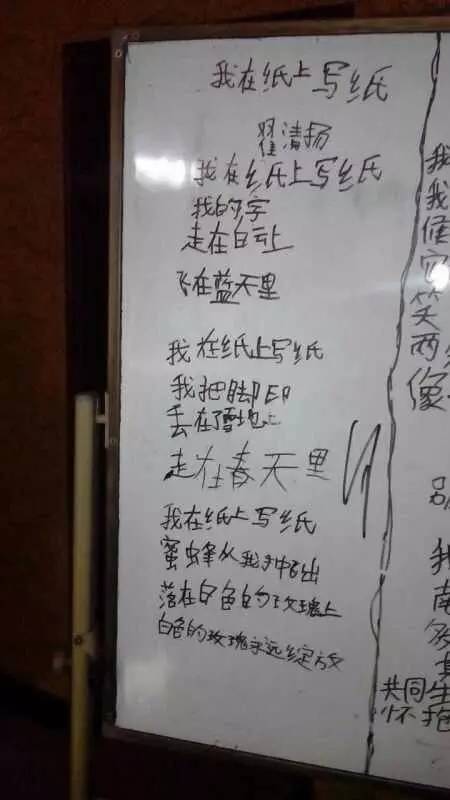 我在纸上写纸
翟清扬
我在纸上写纸
我的字
走在白云上
飞在蓝天里
我在纸上写纸
我把脚印
丢在雪地上
走在春天里
我在纸上写纸
蜜蜂从我手中飞出
落在白色的玫瑰上
白色的玫瑰永远绽放
我
我
候
笑
两
像
我
南
共同生
怀抱